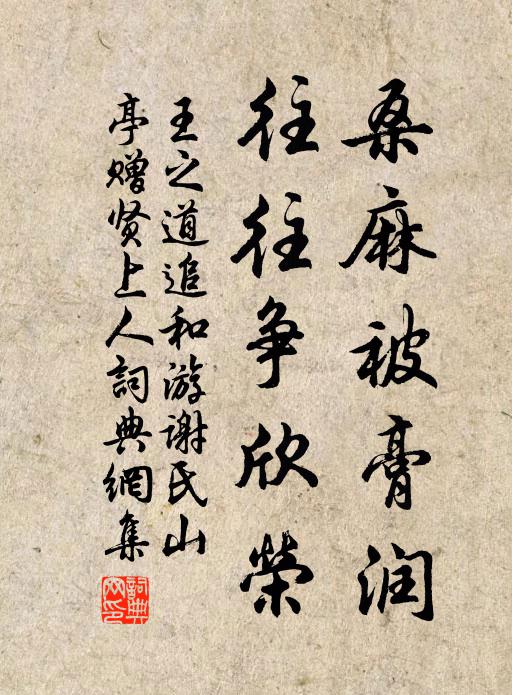 桑麻被膏润
往往争欣榮
王之道追和游谢氏山
亭赠贤上人词典網集
詞典
网印